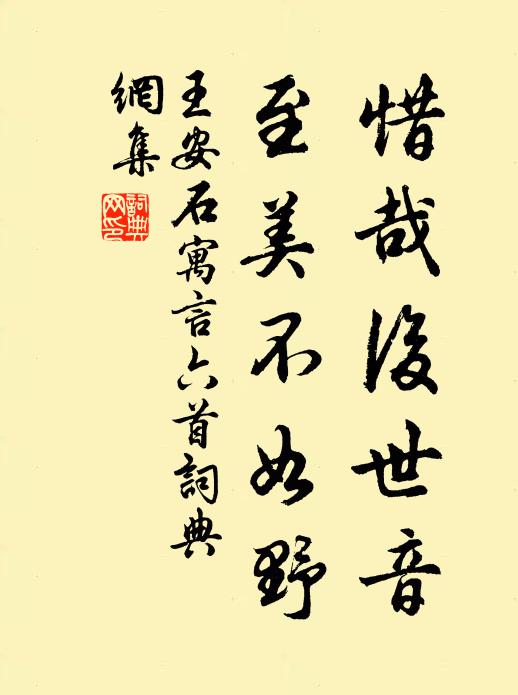 惜哉後世音
至美不如野
王安石寓言六首詞典
網集
詞典
网印